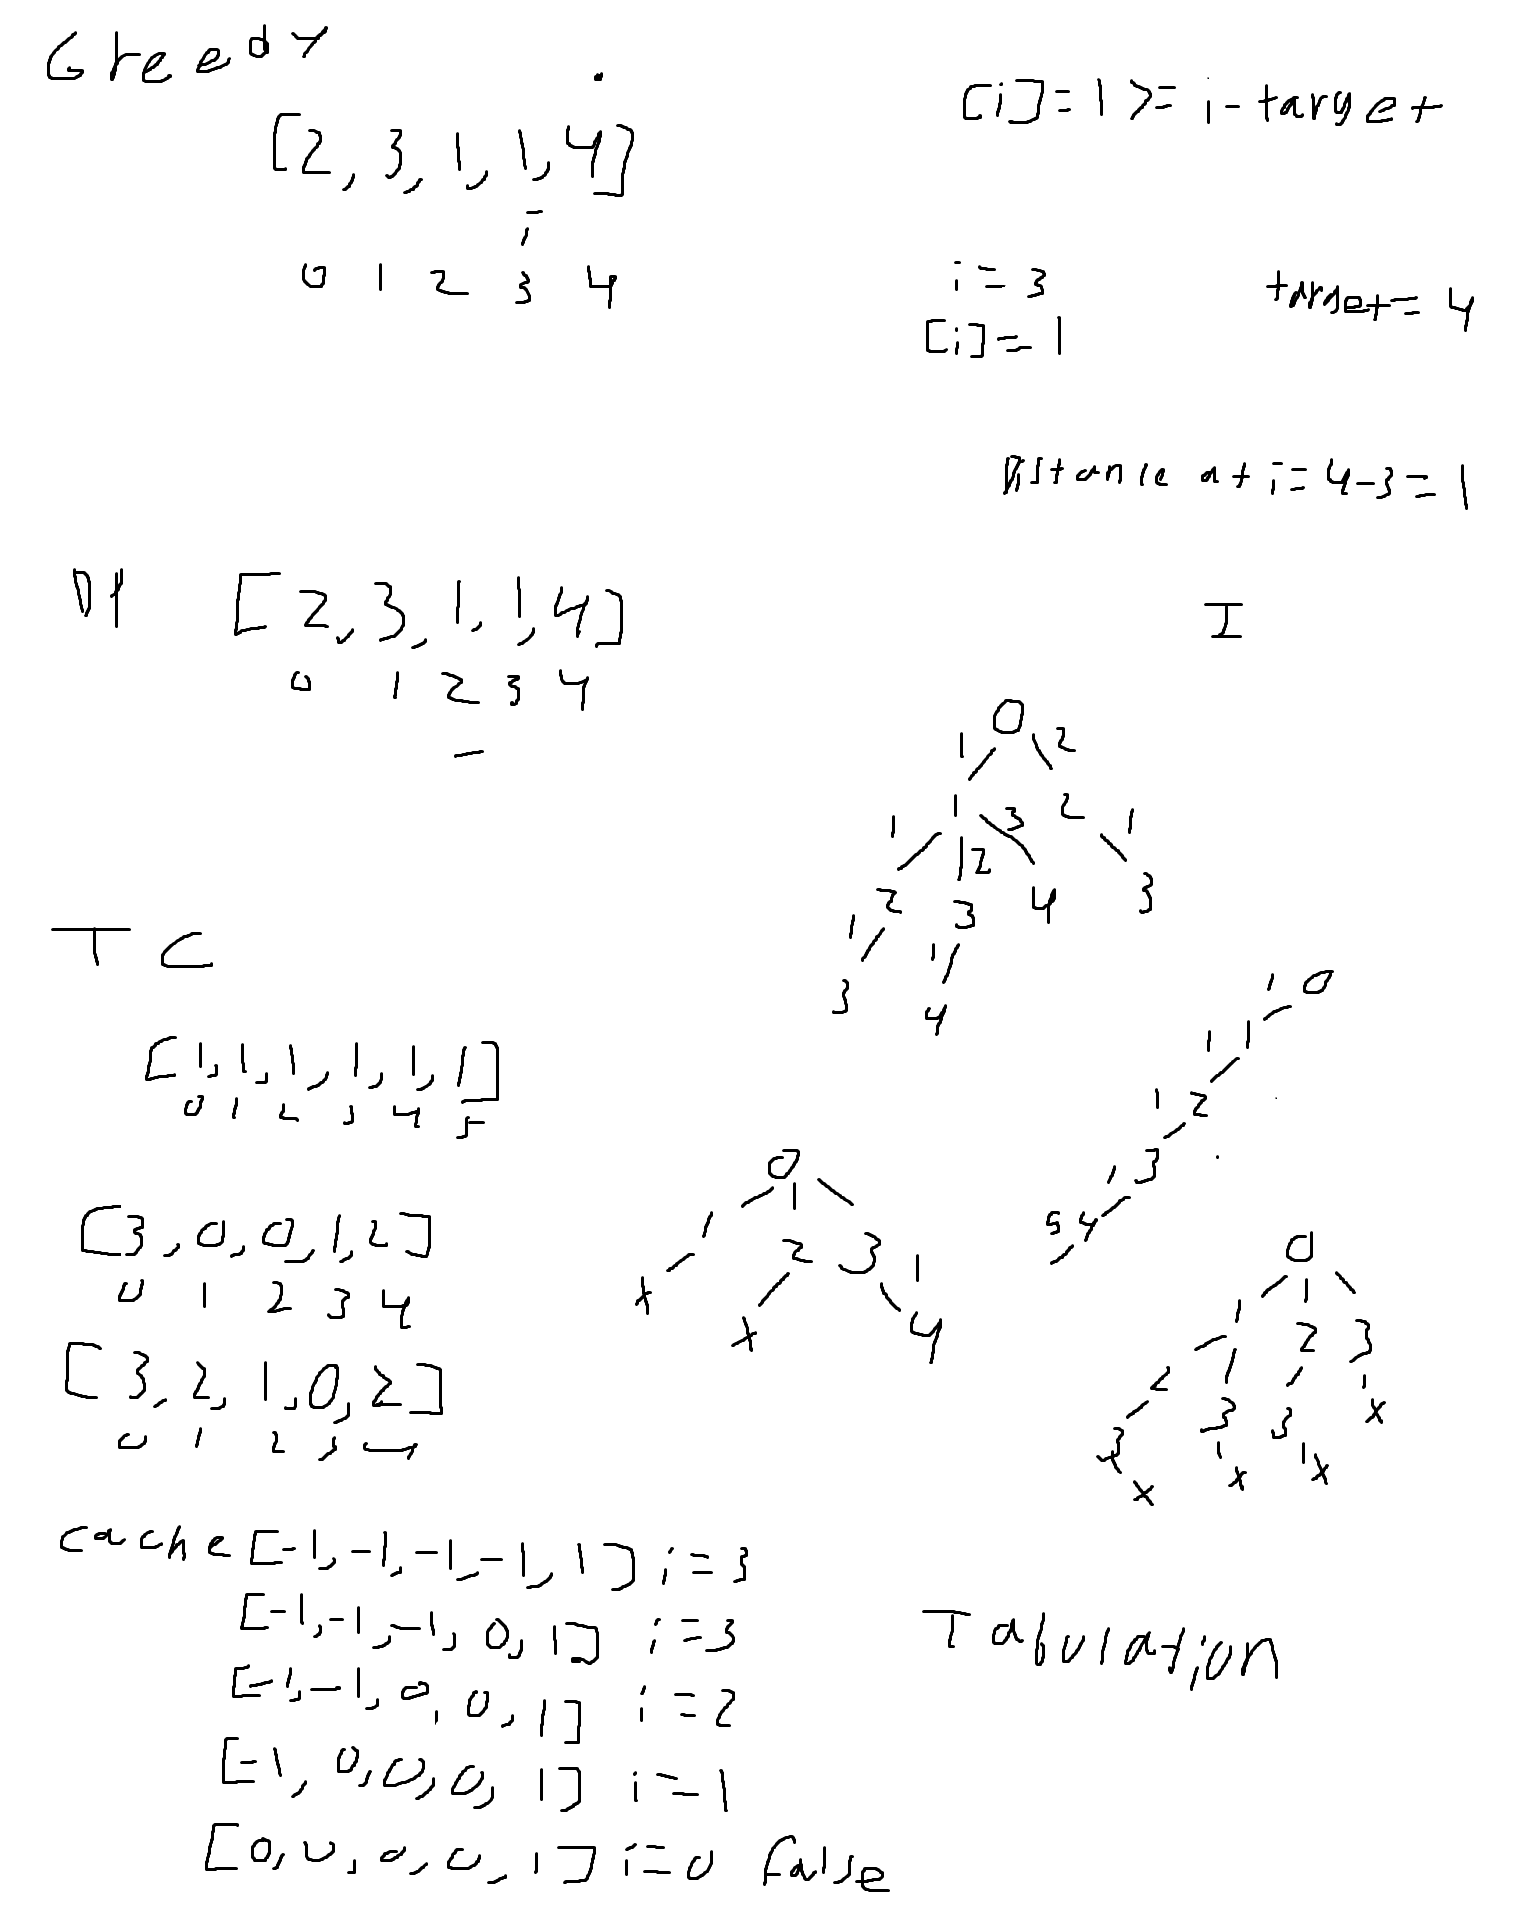 Greedy
[2, 3, 1, 1, 4]
i
0 1 2 3 4
[i]=1 >= i-target
i=3
target=4
[i]=1
Distance at i=4-3=1
DP [2, 3, 1, 1, 4]
0 1 2 3 4
I
0
1 2
1 2
1 2 3 1
2 3 4 3
1 1
3 4
TC
[1, 1, 1, 1, 1, 1]
0 1 2 3 4 5
1 0
1 1
1 2
1 3
5 4
[3, 0, 0, 1, 2]
0 1 2 3 4
0
1 2 3 1
x x 4
[3, 2, 1, 0, 2]
0 1 2 3 4
0
1 2 3
2 3 3 x
3 x x
x
cache [-1, -1, -1, -1, 1] i=3
[-1, -1, -1, 0, 1] i=3
[-1, -1, 0, 0, 1] i=2
[-1, 0, 0, 0, 1] i=1
[0, 0, 0, 0, 1] i=0 false
Tabulation